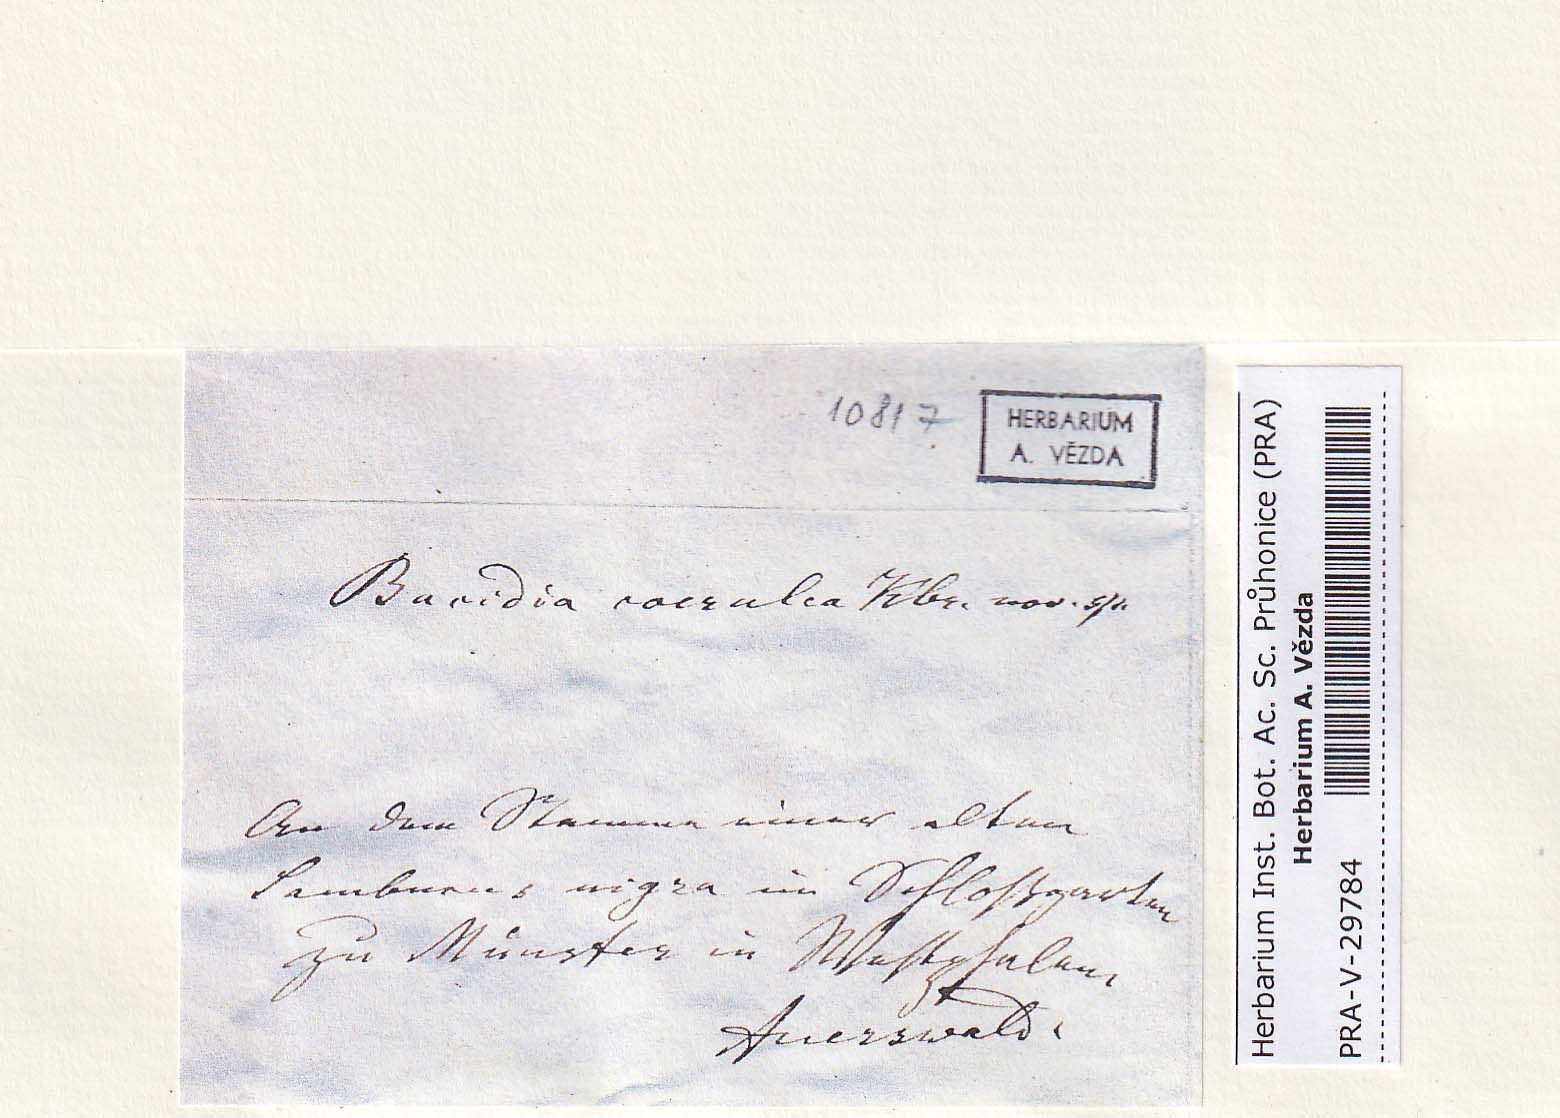 10817
HERBARIUM
A. VĚZDA
Bacidia coerulea Kbr. nov. sp.
An dem Stamme einer alten
Sambucus nigra im Schloßgarten
zu Münster in Westphalen
Auerswald.
Herbarium Inst. Bot. Ac. Sc. Průhonice (PRA)
Herbarium A. Vězda
PRA-V-29784